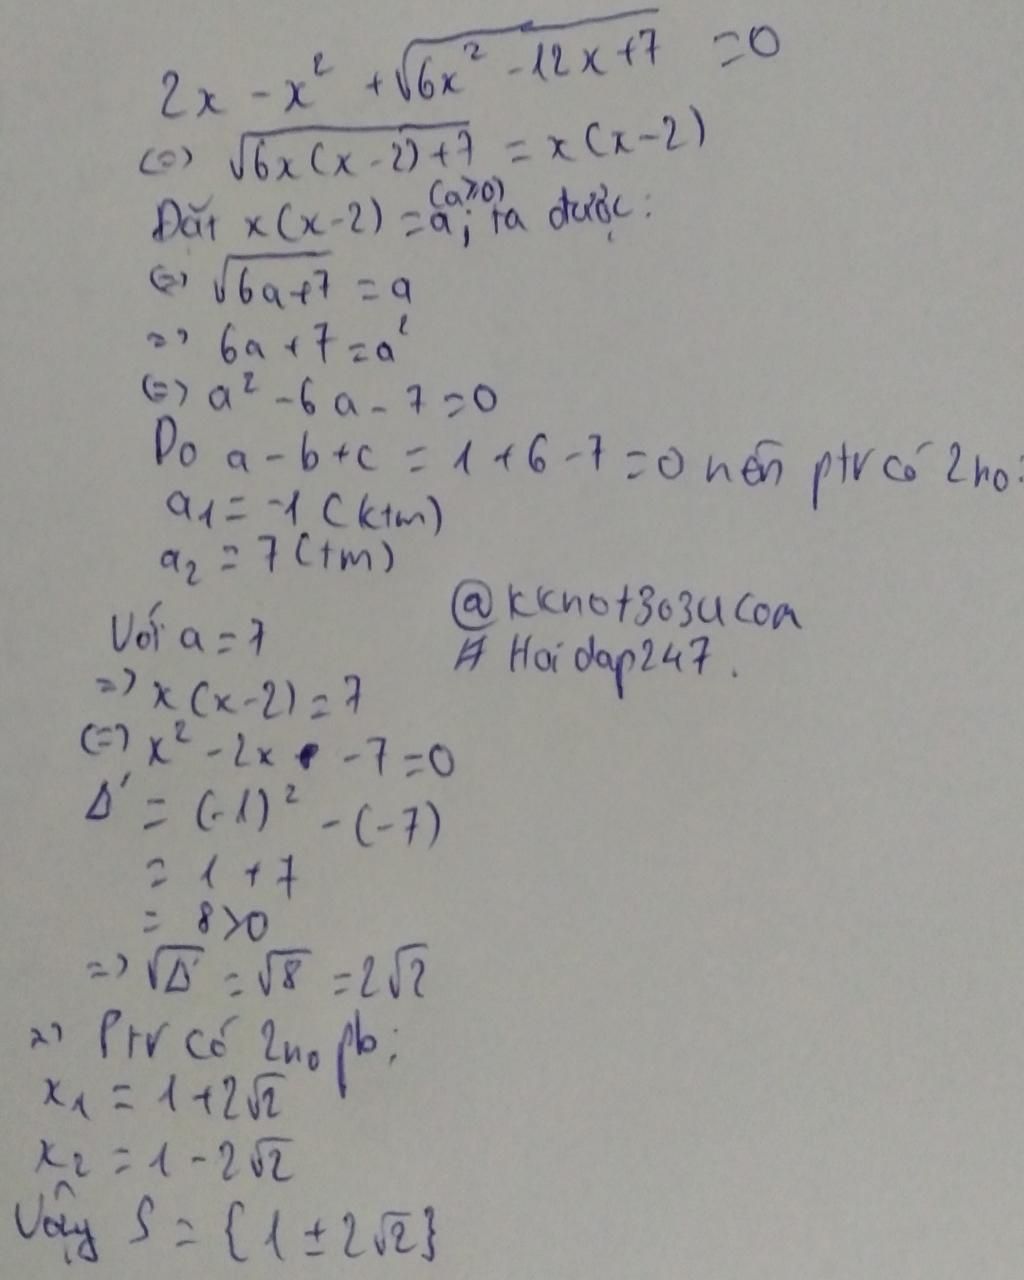 2x - x² + √(6x² - 12x + 7) = 0
(=) √(6x(x-2)+7) = x(x-2)
Đặt x(x-2) = a; (a≥0) ta được:
(=) √(6a+7) = a
=> 6a + 7 = a²
(=) a² - 6a - 7 = 0
Do a - b + c = 1 + 6 - 7 = 0 nên ptr có 2 no:
a₁ = -1 (ktm)
a₂ = 7 (tm)
@kkhot3o3ucoa
# Hoidap247.
Với a = 7
=> x(x-2) = 7
(=) x² - 2x - 7 = 0
Δ' = (-1)² - (-7)
= 1 + 7
= 8 > 0
=> √Δ' = √8 = 2√2
=> Ptr có 2 no pb:
x₁ = 1 + 2√2
x₂ = 1 - 2√2
Vậy S = {1 ± 2√2}